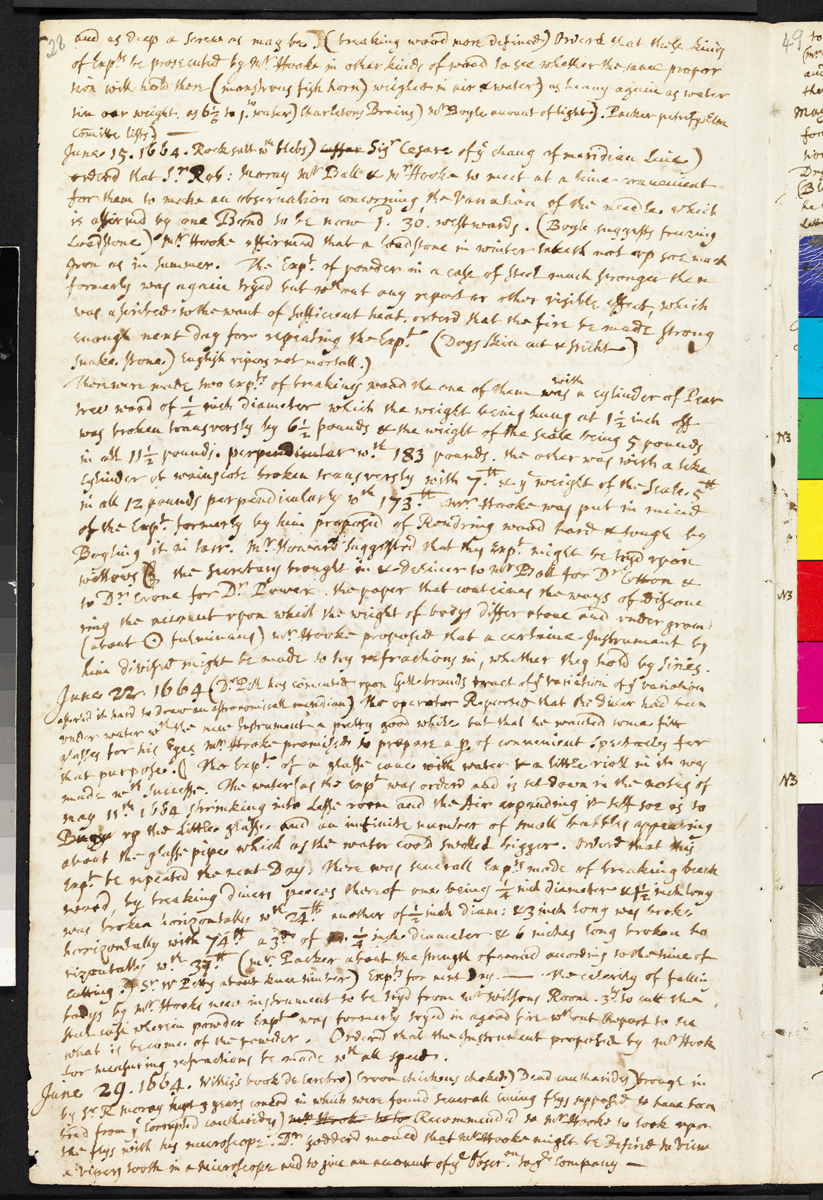 28
and as deep a screw as may be.) (breaking wood more defined) Orderd that these kinds
of Expts be prosecuted by Mr Hooke in other kinds of wood to see whether the same propor
tion will hold there (monstrous fish horn) weighed in air & water) as heavy again as water
its own weight. as 6½ to 1. to water) Charletons Brains) Mr Boyle account of light). Packer petrifyd Elm
Comitte lists) —
June. 15. 1664. Rock salt wth blebs) Sigr Cesare of ye chang of meridian Line)
orderd that Sr Rob: Moray Mr Ball & Mr Hooke to meet at a time convenient
for them to make an observation concerning the Variation of the needle which
is affirmd by one Bond to be now 1d. 30'. westwards. (Boyle suggests freezing
Loadstone) Mr Hooke affirmed that a loadstone in winter taketh not up soe much
Iron as in summer. The Expt. of powder in a case of steel much stronger then
formerly was again tryed but wthout any report or other visible effect, which
was ascribed to the want of sufficient heat. orderd that the fire be made strong
enough next day for repeating the Expt. (Dogs skin cut & sticht)
Snake. stone.) English vipers not mortall.)
There were made two Expts. of breaking wood the one of them was with a cylinder of Pear
tree wood of ½ inch diameter which the weight being hung at 1½ inch off
was broken transversly by 6½ pounds & the weight of the scale being 5 pounds
in all 11½ pounds. perpendicular wth 183 pounds. the other was with a like
Cylinder of wainscote broken transversly with 7 lb & ye weight of the Scale. 5 lb
in all 12 pounds perpendicularly wth 173 lb. Mr. Hooke was put in mind
of the Expt. formerly by him proposed of Rendring wood hard & tough by
Boyling it in tarr. Mr. Howard suggested that this Expt. might be tryd upon
willows the Secretary brought in & deliver to Mr Ball for Dr Cotton &
to Dr. Crone for Dr. Power. the paper that containes the ways of Discove
ring the account upon which the weight of bodys differ above and under ground
(about ☉ fulminans) Mr. Hooke proposed that a certaine Instrument by
him devised might be made to try refractions in, whether they hold by sines.
June 22. 1664 (Dr. Pell has comented upon Gellebrands tract of ye variation of ye variation
affirmd it hard to draw an astronomicall meridian) The operator Reported that the diver had been
under water wth the new Instrument a pretty good while but that he wanted some fitt
glasses for his Eyes Mr. Hooke promised to prepare a p. of convenient spectacles for
that purpose. The Expt. of a glasse cane with water & a little viol in it was
made wth successe. The water (as the Expt was orderd and is set down in the notes of
may 11th 1664 shrinking into Lesse room and the Air expanding it self soe as to
Buoy up the Little glasse. and an infinite number of small bubbles appearing
about the glasse pipe which as the water coold swelled bigger. Orderd that this
Expt. be repeated the next Day. There was severall Expts made of breaking beech
wood, by breaking divers peeces thereof one being ¼ inch diameter & 1½ inch long
was broken horizontally wth 24 lb another of ½ inch diam: & 3 inch long was broke
horizontally with 74 lb. a 3d. of ¼ inch diameter & 6 inches long broken ho
rizontally wth 39 lb. (Mr. Packer about the strength of wood according to the time of
cutting.) Sr. Wm Petty about knee timber) Expts for next Day. — The celerity of falling
bodys by Mr. Hooks new instrument to be tryd from Mr Wilsons Room. 3d. to cutt the
steel case wherein powder Expt was formerly tryd in a good fire wthout Report to see
what is become of the powder. Orderd that the Instrument proposed by Mr Hook
for measuring refractions be made wth all speed.
June 29. 1664. Willis's book de Cerebro) Croon chickens choked) Dead cantharides) brough in
by Sr. R. Moray kept 3 years coverd in which were found severall living flys supposed to have been
bred from ye corrupted cantharides) Recommended to Mr Hooke to look upon
the flys with his microscope. Dr. Godderd moved that Mr Hooke might be Desired to View
a vipers tooth in a microscope and to give an account of ye Observ.on to ye company —
49